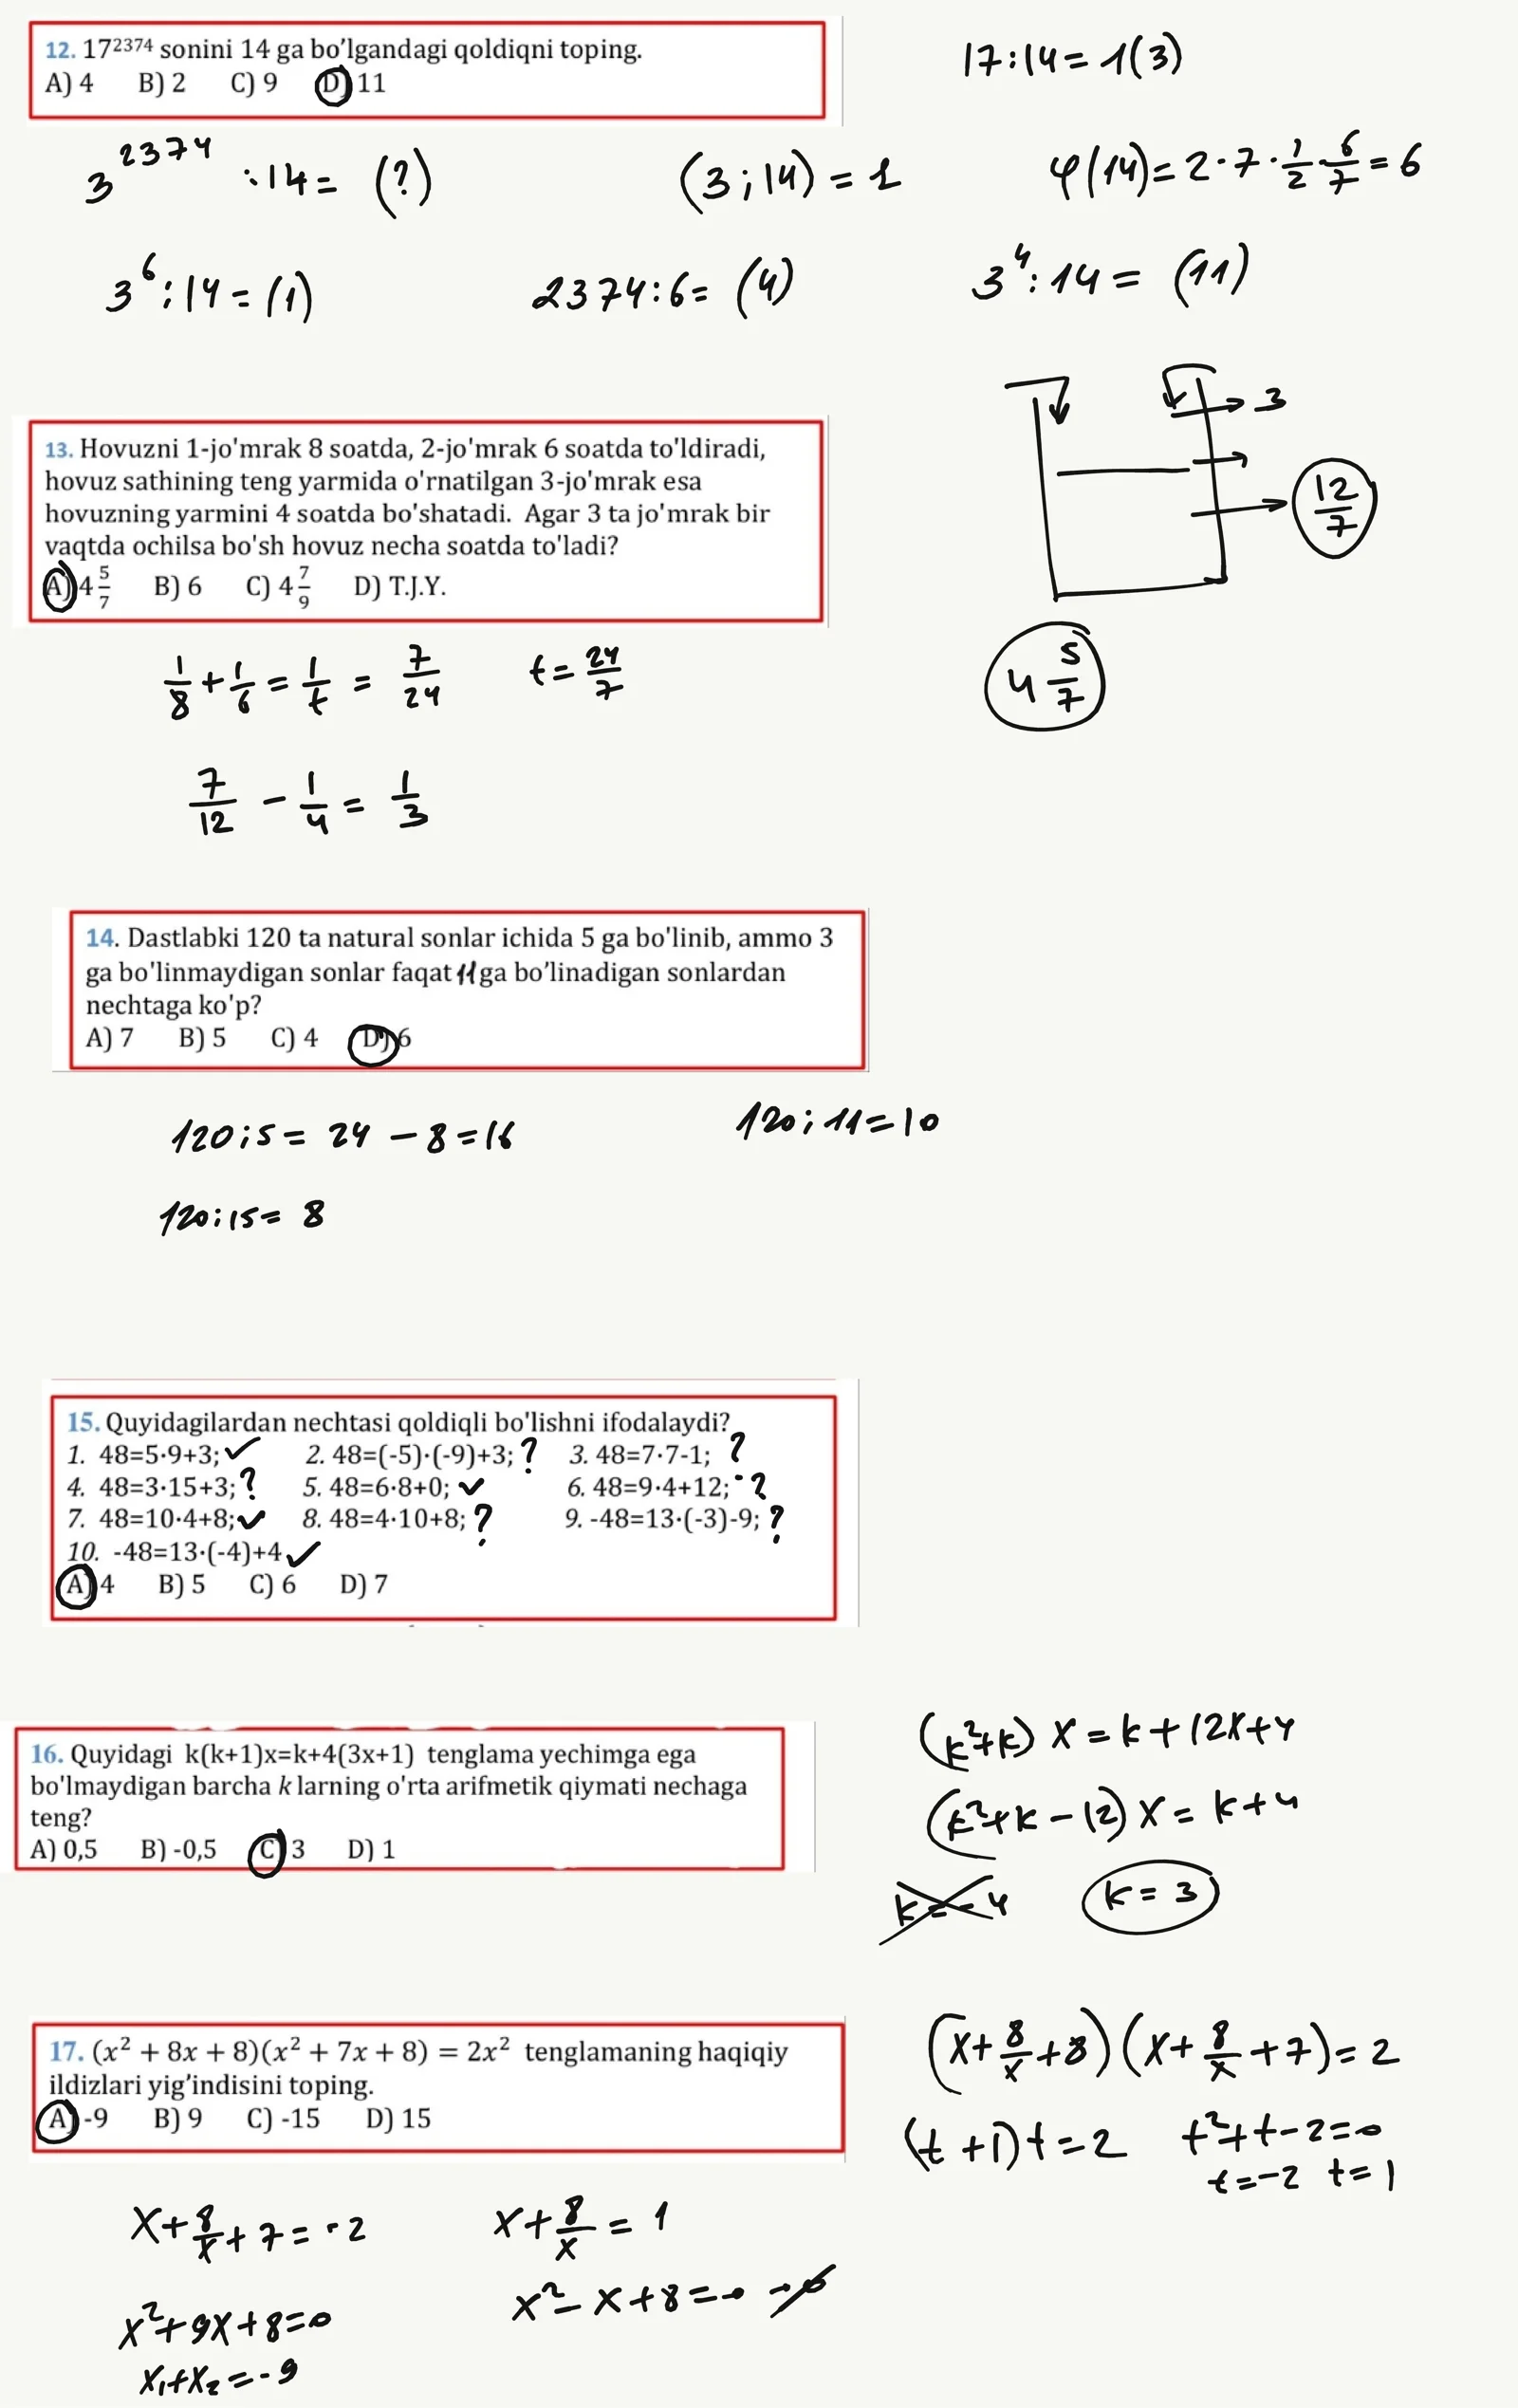 12. 17²³⁷⁴ sonini 14 ga bo’lgandagi qoldiqni toping.
A) 4 B) 2 C) 9 D) 11
17:14=1(3)
3²³⁷⁴ :14= (?)
(3;14)=1
φ(14)=2·7·1/2·6/7=6
3⁶:14=(1)
2374:6=(4)
3⁴:14=(11)
3
12/7
13. Hovuzni 1-jo'mrak 8 soatda, 2-jo'mrak 6 soatda to'ldiradi,
hovuz sathining teng yarmida o'rnatilgan 3-jo'mrak esa
hovuzning yarmini 4 soatda bo'shatadi. Agar 3 ta jo'mrak bir
vaqtda ochilsa bo'sh hovuz necha soatda to'ladi?
A) 4 5/7 B) 6 C) 4 7/9 D) T.J.Y.
1/8+1/6=1/t=7/24
t=24/7
4 5/7
7/12-1/4=1/3
14. Dastlabki 120 ta natural sonlar ichida 5 ga bo'linib, ammo 3
ga bo'linmaydigan sonlar faqat 11 ga bo’linadigan sonlardan
nechtaga ko'p?
A) 7 B) 5 C) 4 D) 6
120:5=24-8=16
120:11=10
120:15=8
15. Quyidagilardan nechtasi qoldiqli bo'lishni ifodalaydi?
1. 48=5·9+3; ✓ 2. 48=(-5)·(-9)+3; ? 3. 48=7·7-1; ?
4. 48=3·15+3; ? 5. 48=6·8+0; ✓ 6. 48=9·4+12; ?
7. 48=10·4+8; ✓ 8. 48=4·10+8; ? 9. -48=13·(-3)-9; ?
10. -48=13·(-4)+4 ✓
A) 4 B) 5 C) 6 D) 7
16. Quyidagi k(k+1)x=k+4(3x+1) tenglama yechimga ega
bo'lmaydigan barcha k larning o'rta arifmetik qiymati nechaga
teng?
A) 0,5 B) -0,5 C) 3 D) 1
(k²+k) x=k+12x+4
(k²+k-12) x=k+4
k=-4
k=3
17. (x² + 8x + 8)(x² + 7x + 8) = 2x² tenglamaning haqiqiy
ildizlari yig’indisini toping.
A) -9 B) 9 C) -15 D) 15
(x+8/x+8)(x+8/x+7)=2
(t+1)t=2 t²+t-2=0
t=-2 t=1
x+8/x+7=-2
x+8/x=1
x²-x+8=0 → ∅
x²+9x+8=0
x₁+x₂=-9